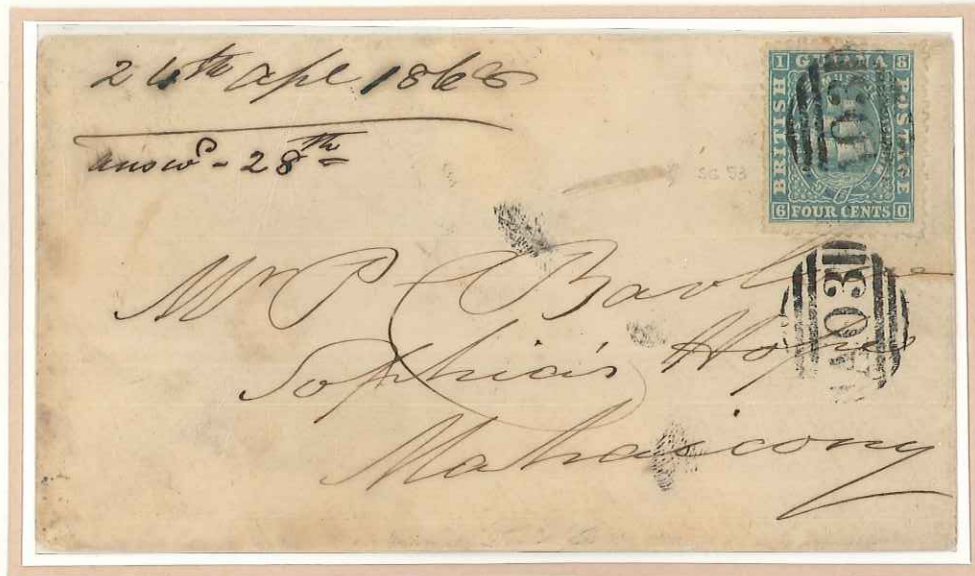 24th Apl 1868
answd - 28th
SG 53
1 GUIANA 8
BRITISH
POSTAGE
6 FOUR CENTS 0
A03
A03
Mr P C
Sophia's Hope
Mahaicony